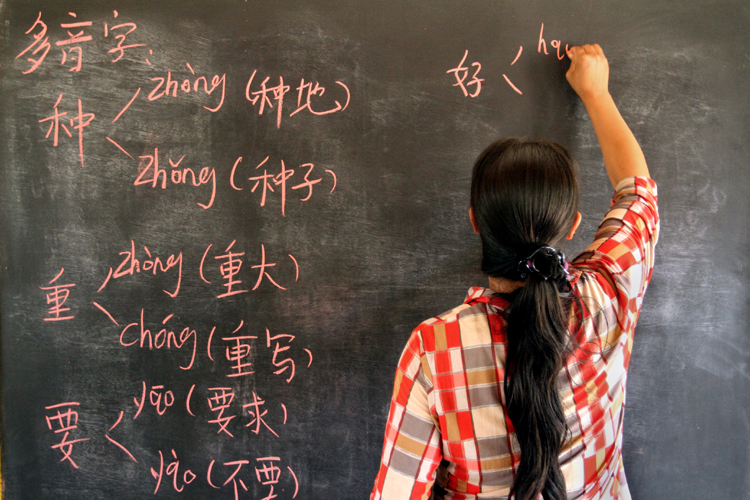 多音字:
种
zhòng (种地)
zhǒng (种子)
重
zhòng (重大)
chóng (重写)
要
yāo (要求)
yào (不要)
好
hǎo